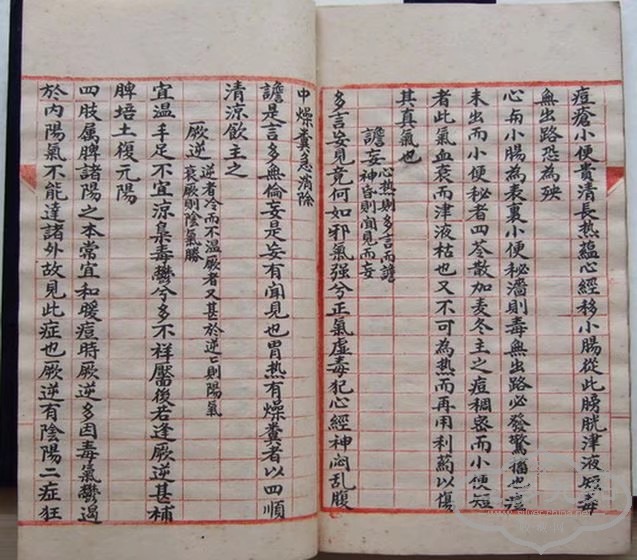 痘瘡小便貴清長熱蘊心經移小腸從此膀胱津液短毒
無出路恐為殃
心与小腸為表裏小便秘濇則毒無出路必發驚搐也痘
未出而小便秘者四苓散加麦冬主之痘稠密而小便短
者此氣血衰而津液枯也又不可為熱而再用利药以傷
其真氣也
譫妄 心熱則多言而譫
神昏則聞見而妄
多言妄見竟何如邪氣强兮正氣虛毒犯心經神悶乱腹
中燥糞急消除
譫是言多無倫妄是妄有聞見也胃熱有燥糞者以四順
清涼飲主之
厥逆 逆者冷而不温厥者又甚於逆亡則陽氣
衰厥則陰氣勝
宜温手足不宜涼梟毒欝兮多不祥靨後若逢厥逆甚補
脾培土復元陽
四肢属脾諸陽之本常宜和暖痘時厥逆多因毒氣欝遏
於内陽氣不能達諸外故見此症也厥逆有陰陽二症狂